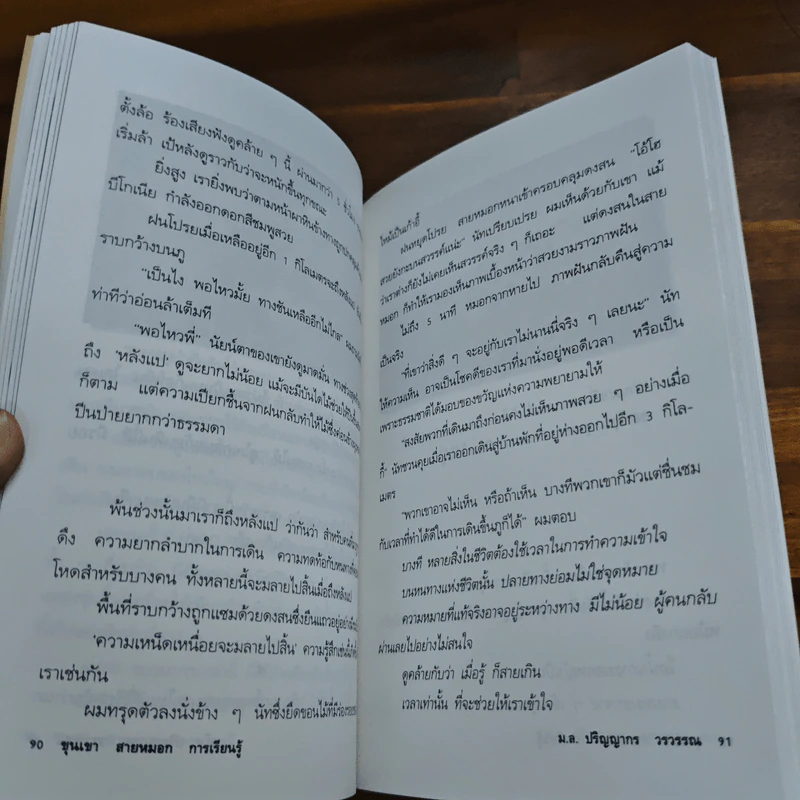 ตั้งล้อ ร้องเสียงฟังดูคล้าย ๆ นี้ ผ่านมากว่า 5
เริ่มล้า เป้หลังดูราวกับว่าจะหนักขึ้นทุกขณะ
ยิ่งสูง เรายิ่งพบว่าตามหน้าผาหินข้างทาง
บีโกเนีย กำลังออกดอกสีชมพูสวย
ฝนโปรยเมื่อเหลืออยู่อีก 1 กิโลเมตรจะถึง
ราบกว้างบนภู
"เป็นไง พอไหวมั้ย ทางชันเหลืออีกไม่ไกล"
ท่าทีว่าอ่อนล้าเต็มที
"พอไหวพี่" นัยน์ตาของเขายังดูมาดมั่น
ถึง 'หลังแป' ดูจะยากไม่น้อย แม้จะมีบันไดไม้ช่วยให้
ก็ตาม แต่ความเปียกชื้นจากฝนกลับทำให้ไม้ซึ่งค่อนข้าง
ปีนป่ายยากกว่าธรรมดา
พ้นช่วงนั้นมาเราก็ถึงหลังแป ว่ากันว่า สำหรับ
ดึง ความยากลำบากในการเดิน ความทดท้อกับหนทาง
โหดสำหรับบางคน ทั้งหลายนี้จะมลายไปสิ้นเมื่อถึงหลังแป
พื้นที่ราบกว้างถูกแซมด้วยดงสนซึ่งยืนแถวอยู่อย่าง
'ความเหน็ดเหนื่อยจะมลายไปสิ้น' ความรู้สึกเช่นนี้
เราเช่นกัน
ผมทรุดตัวลงนั่งข้าง ๆ นัทซึ่งยึดขอนไม้ที่มีร่องรอย
90 ขุนเขา สายหมอก การเรียนรู้
ไหม้เป็นเก้าอี้
ฝนหยุดโปรย สายหมอกหนาเข้าครอบคลุมดงสน "โอ้โฮ
สวยยังกะบนสวรรค์แน่ะ" นัทเปรียบเปรย ผมเห็นด้วยกับเขา แม้
ว่าเราต่างก็ยังไม่เคยเห็นสวรรค์จริง ๆ ก็เถอะ แต่ดงสนในสาย
หมอก ก็ทำให้เรามองเห็นภาพเบื้องหน้าว่าสวยงามราวภาพฝัน
ไม่ถึง 5 นาที หมอกจากหายไป ภาพฝันกลับคืนสู่ความ
เป็นจริง
"ที่เขาว่าสิ่งดี ๆ จะอยู่กับเราไม่นานนี่จริง ๆ เลยนะ" นัท
ให้ความเห็น อาจเป็นโชคดีของเราที่มานั่งอยู่พอดีเวลา หรือเป็น
เพราะธรรมชาติได้มอบของขวัญแห่งความพยายามให้
"สงสัยพวกที่เดินมาถึงก่อนคงไม่เห็นภาพสวย ๆ อย่างเมื่อ
กี้" นัทชวนคุยเมื่อเราออกเดินสู่บ้านพักที่อยู่ห่างออกไปอีก 3 กิโล-
เมตร
"พวกเขาอาจไม่เห็น หรือถ้าเห็น บางทีพวกเขาก็มัวแต่ชื่นชม
กับเวลาที่ทำได้ดีในการเดินขึ้นภูก็ได้" ผมตอบ
บางที หลายสิ่งในชีวิตต้องใช้เวลาในการทำความเข้าใจ
บนหนทางแห่งชีวิตนั้น ปลายทางย่อมไม่ใช่จุดหมาย
ความหมายที่แท้จริงอาจอยู่ระหว่างทาง มีไม่น้อย ผู้คนกลับ
ผ่านเลยไปอย่างไม่สนใจ
ดูคล้ายกับว่า เมื่อรู้ ก็สายเกิน
เวลาเท่านั้น ที่จะช่วยให้เราเข้าใจ
ม.ล. ปริญญากร วรวรรณ 91